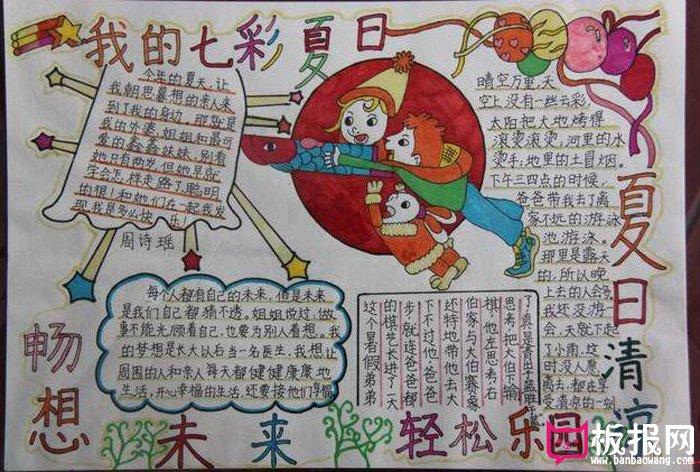 我的七彩夏日
今年的夏天，让
我朝思暮想的亲人来
到了我的身边，那就是
我的外婆、姐姐和最可
爱的鑫鑫妹妹，别看
她只有两岁，但她早就
学会怎样走路了，聪明
的很！和她们在一起，我发
现我是多么快乐！
周诗瑶
晴空万里，天
空上没有一丝云彩，
太阳把大地烤得
滚烫滚烫，河里的水
烫手，地里的土冒烟。
下午三四点的时候，
爸爸带我去了离
家不远的游泳
池游泳。
那里是露天
的，所以晚
上去的人会多，
我还没游一
会，天就下起
了小雨，这
时没人愿
离去，都在享
受清凉的一刻
夏日清凉
每个人都有自己的未来，但是未来
是我们自己都猜不透。姐姐说过，做
事不能光顾着自己，也要为别人着想。我
的梦想是长大以后当一名医生，我想让
周围的人和亲人每天都健健康康地
生活，开心幸福的生活，还要接他们享福
畅想未来
这个暑假弟弟
的棋艺长进了一大
步！就连爸爸都
下不过他，爸爸
还特地带他去大
伯家与大伯赛象
棋，他左思考右
思考，把大伯下输
轻松乐园
板报网
www.banbaowang.com